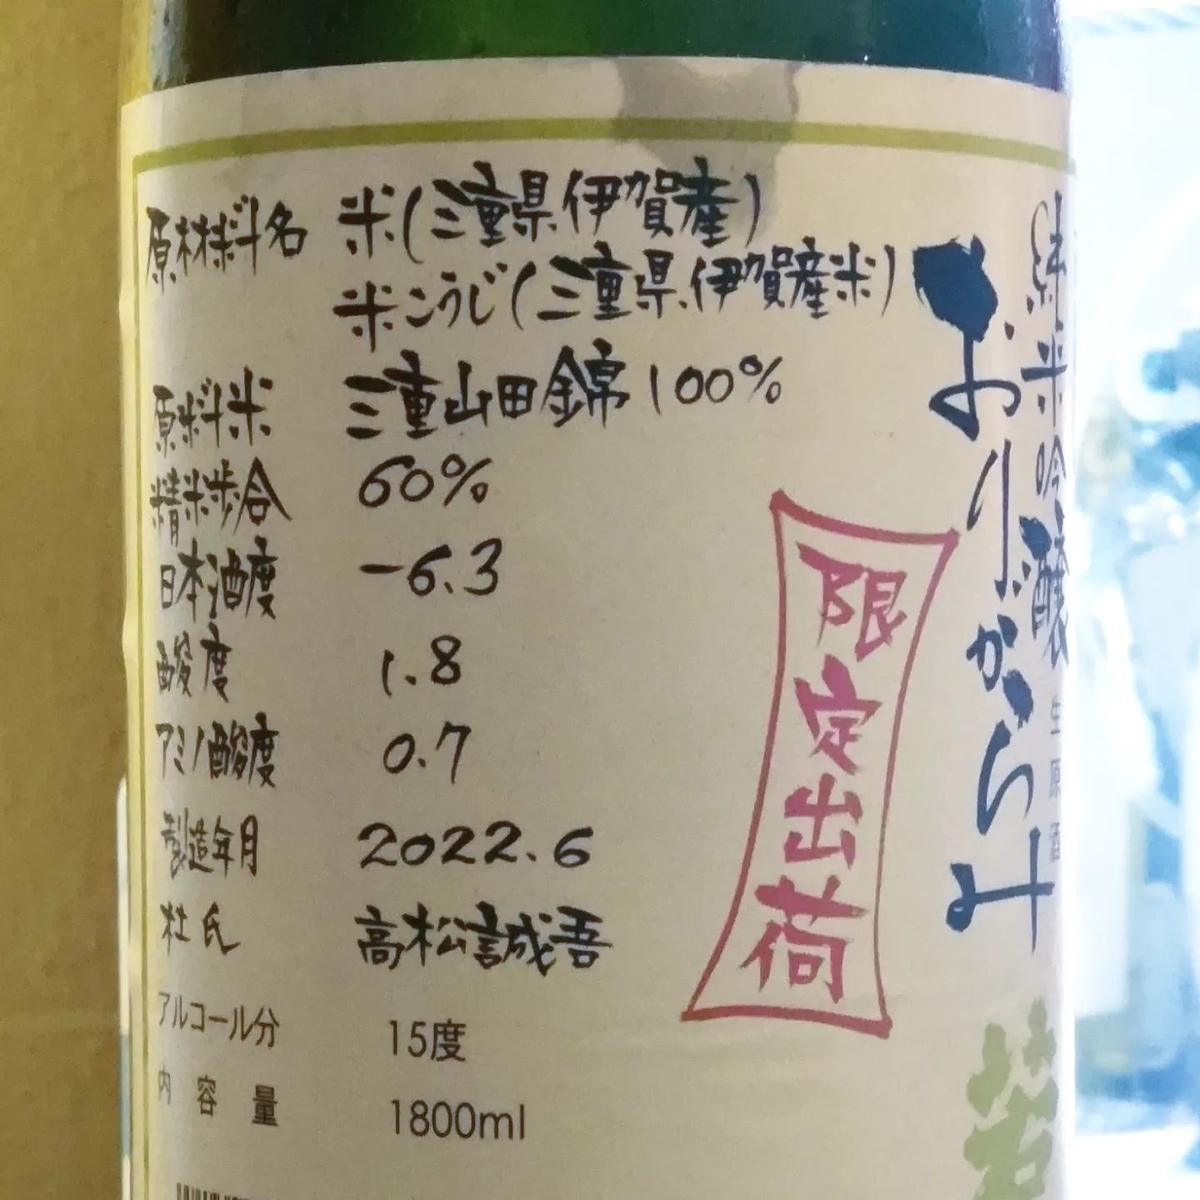 原材料名 米(三重県伊賀産)
米こうじ(三重県伊賀産米)
原料米 三重山田錦100%
精米歩合 60%
日本酒度 -6.3
酸度 1.8
アミノ酸度 0.7
製造年月 2022.6
杜氏 高松誠吾
アルコール分 15度
内容量 1800ml
限定出荷
おりがらみ
純米吟醸 生原酒